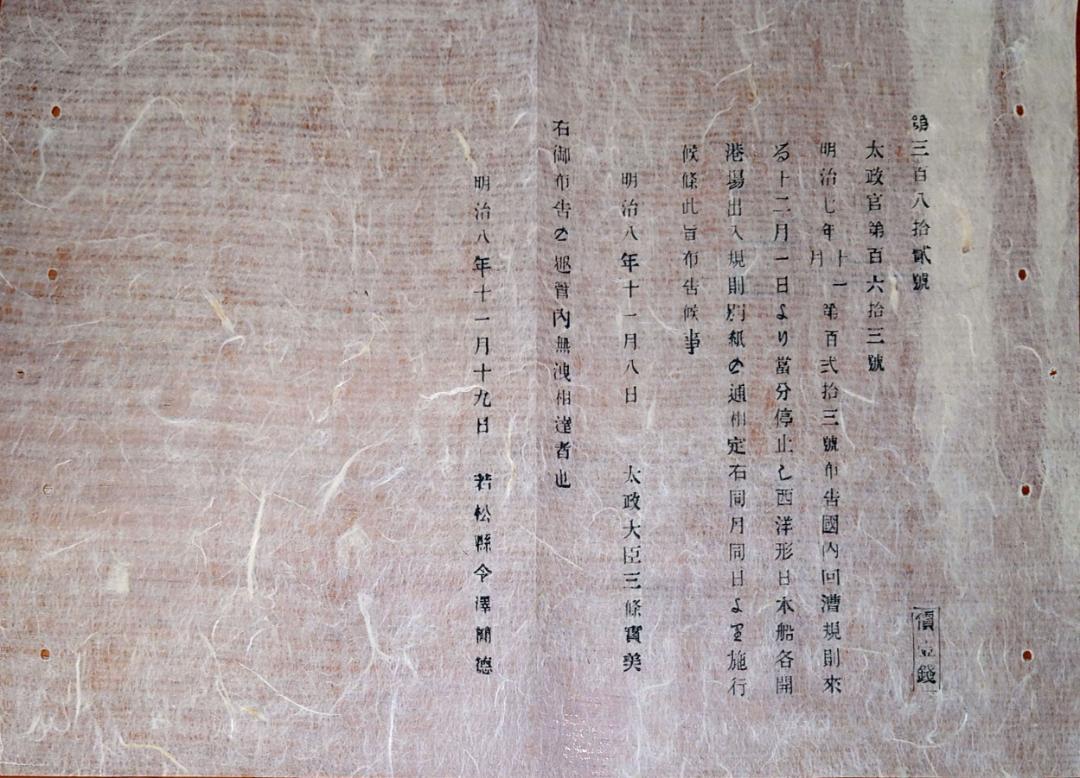 第三百八拾貳號
價壹錢
太政官第百六拾三號
明治七年十一月第百弐拾三號布告國内回漕規則來
る十二月一日より當分停止し西洋形日本船各開
港場出入規則別紙の通相定右同月同日より施行
候條此旨布告候事
明治八年十一月八日 太政大臣三條實美
右御布告の趣管内無洩相達者也
明治八年十一月十九日 若松縣令澤簡德